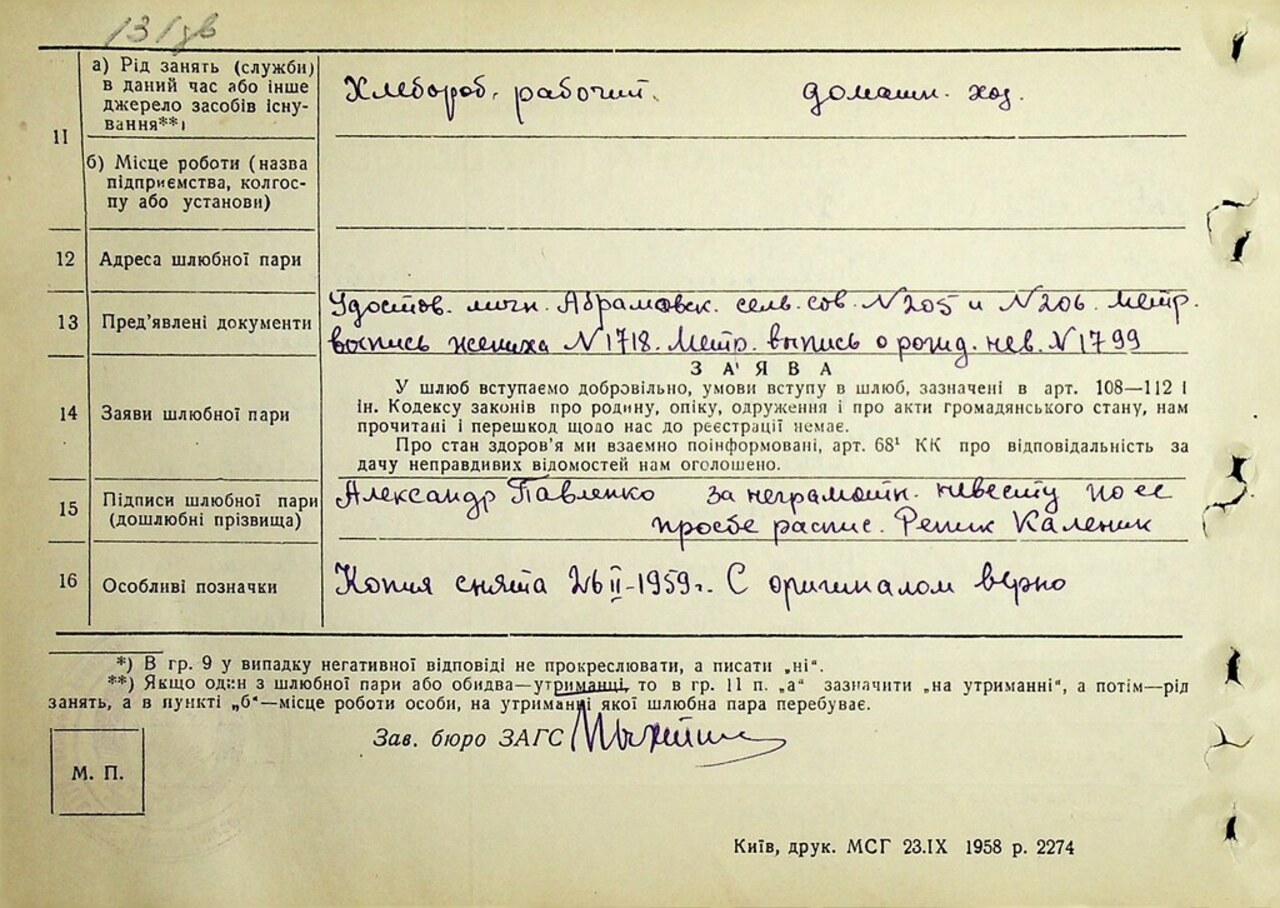 131зв
а) Рід занять (служби) в даний час або інше джерело засобів існування**)
Хлебороб, рабочий. домашн. хоз.
11
б) Місце роботи (назва підприємства, колгоспу або установи)
12 Адреса шлюбної пари
13 Пред’явлені документи
Удостов. личн. Абрамовск. сель. сов. N205 и N206. Метр.
выпись жениха N1718. Метр. выпись о рожд. нев. N1799
14 Заяви шлюбної пари
З А Я В А
У шлюб вступаємо добровільно, умови вступу в шлюб, зазначені в арт. 108—112 і
ін. Кодексу законів про родину, опіку, одруження і про акти громадянського стану, нам
прочитані і перешкод щодо нас до реєстрації немає.
Про стан здоров’я ми взаємно поінформовані, арт. 68¹ КК про відповідальність за
дачу неправдивих відомостей нам оголошено.
15 Підписи шлюбної пари
(дошлюбні прізвища)
Александр Павленко за неграмотн. невесту по ее
просбе распис. Репик Каленик
16 Особливі позначки
Копия снята 26 II-1959г. С оригиналом верно
*) В гр. 9 у випадку негативної відповіді не прокреслювати, а писати „ні“.
**) Якщо один з шлюбної пари або обидва—утриманці, то в гр. 11 п. „а“ зазначити „на утриманні“, а потім—рід
занять, а в пункті „б“—місце роботи особи, на утриманні якої шлюбна пара перебуває.
Зав. бюро ЗАГС
М. П.
Київ, друк. МСГ 23.IX 1958 р. 2274